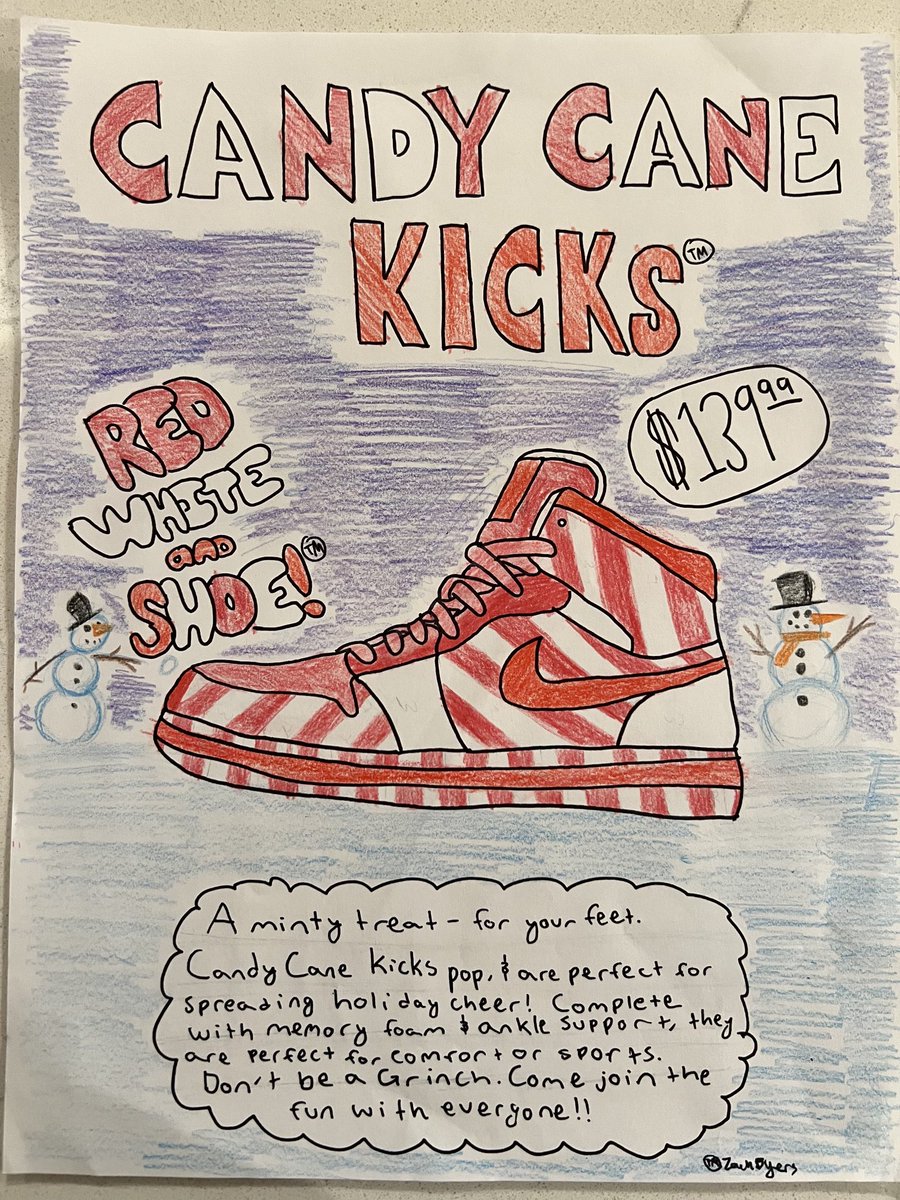 CANDY CANE
KICKS TM
RED
WHITE
AND
SHOE! TM
$139.99
A minty treat - for your feet.
Candy Cane Kicks pop, & are perfect for
spreading holiday cheer! Complete
with memory foam & ankle support, they
are perfect for comfort or sports.
Don't be a Grinch. Come join the
fun with everyone!!
TM Zach Byers